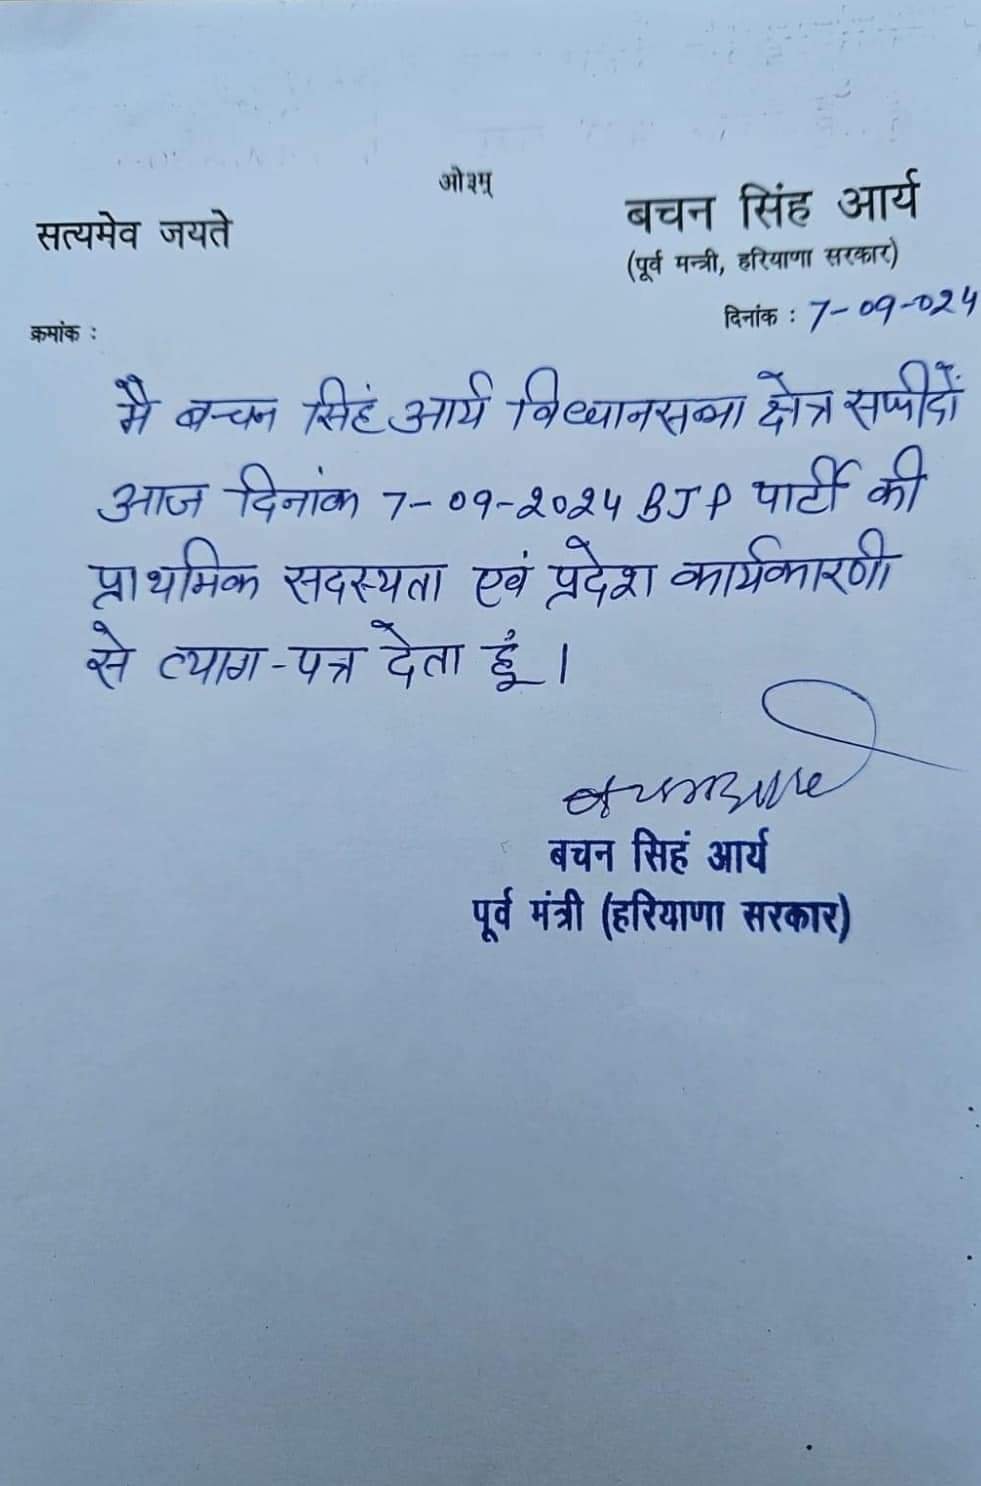 ओ३म्
सत्यमेव जयते
बचन सिंह आर्य
(पूर्व मन्त्री, हरियाणा सरकार)
क्रमांक :
दिनांक : 7-09-024
मै बचन सिहं आर्य विधानसभा क्षेत्र सफीदों
आज दिनांक 7-09-2024 BJP पार्टी की
प्राथमिक सदस्यता एवं प्रदेश कार्यकारणी
से त्याग-पत्र देता हूं।
बचन सिहं आर्य
पूर्व मंत्री (हरियाणा सरकार)